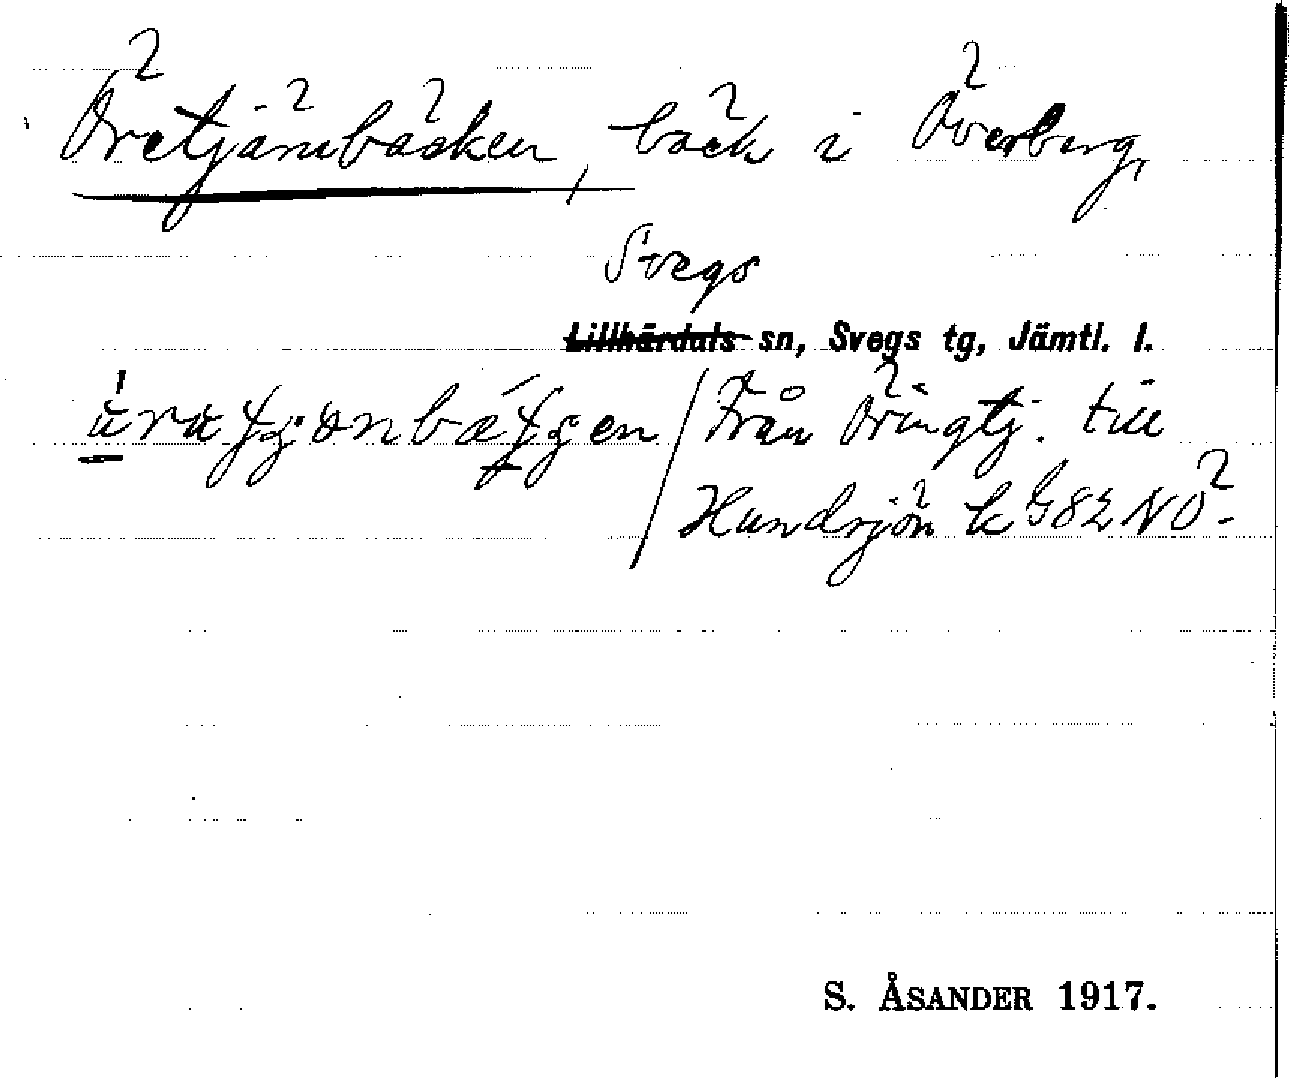 Öretjärnbäcken, bäck i Överberg,
Svegs
Lillhärdals sn, Svegs tg, Jämtl. l.
Från Öringtj. till
Hundsjön k G82NÖ-
S. ÅSANDER 1917.